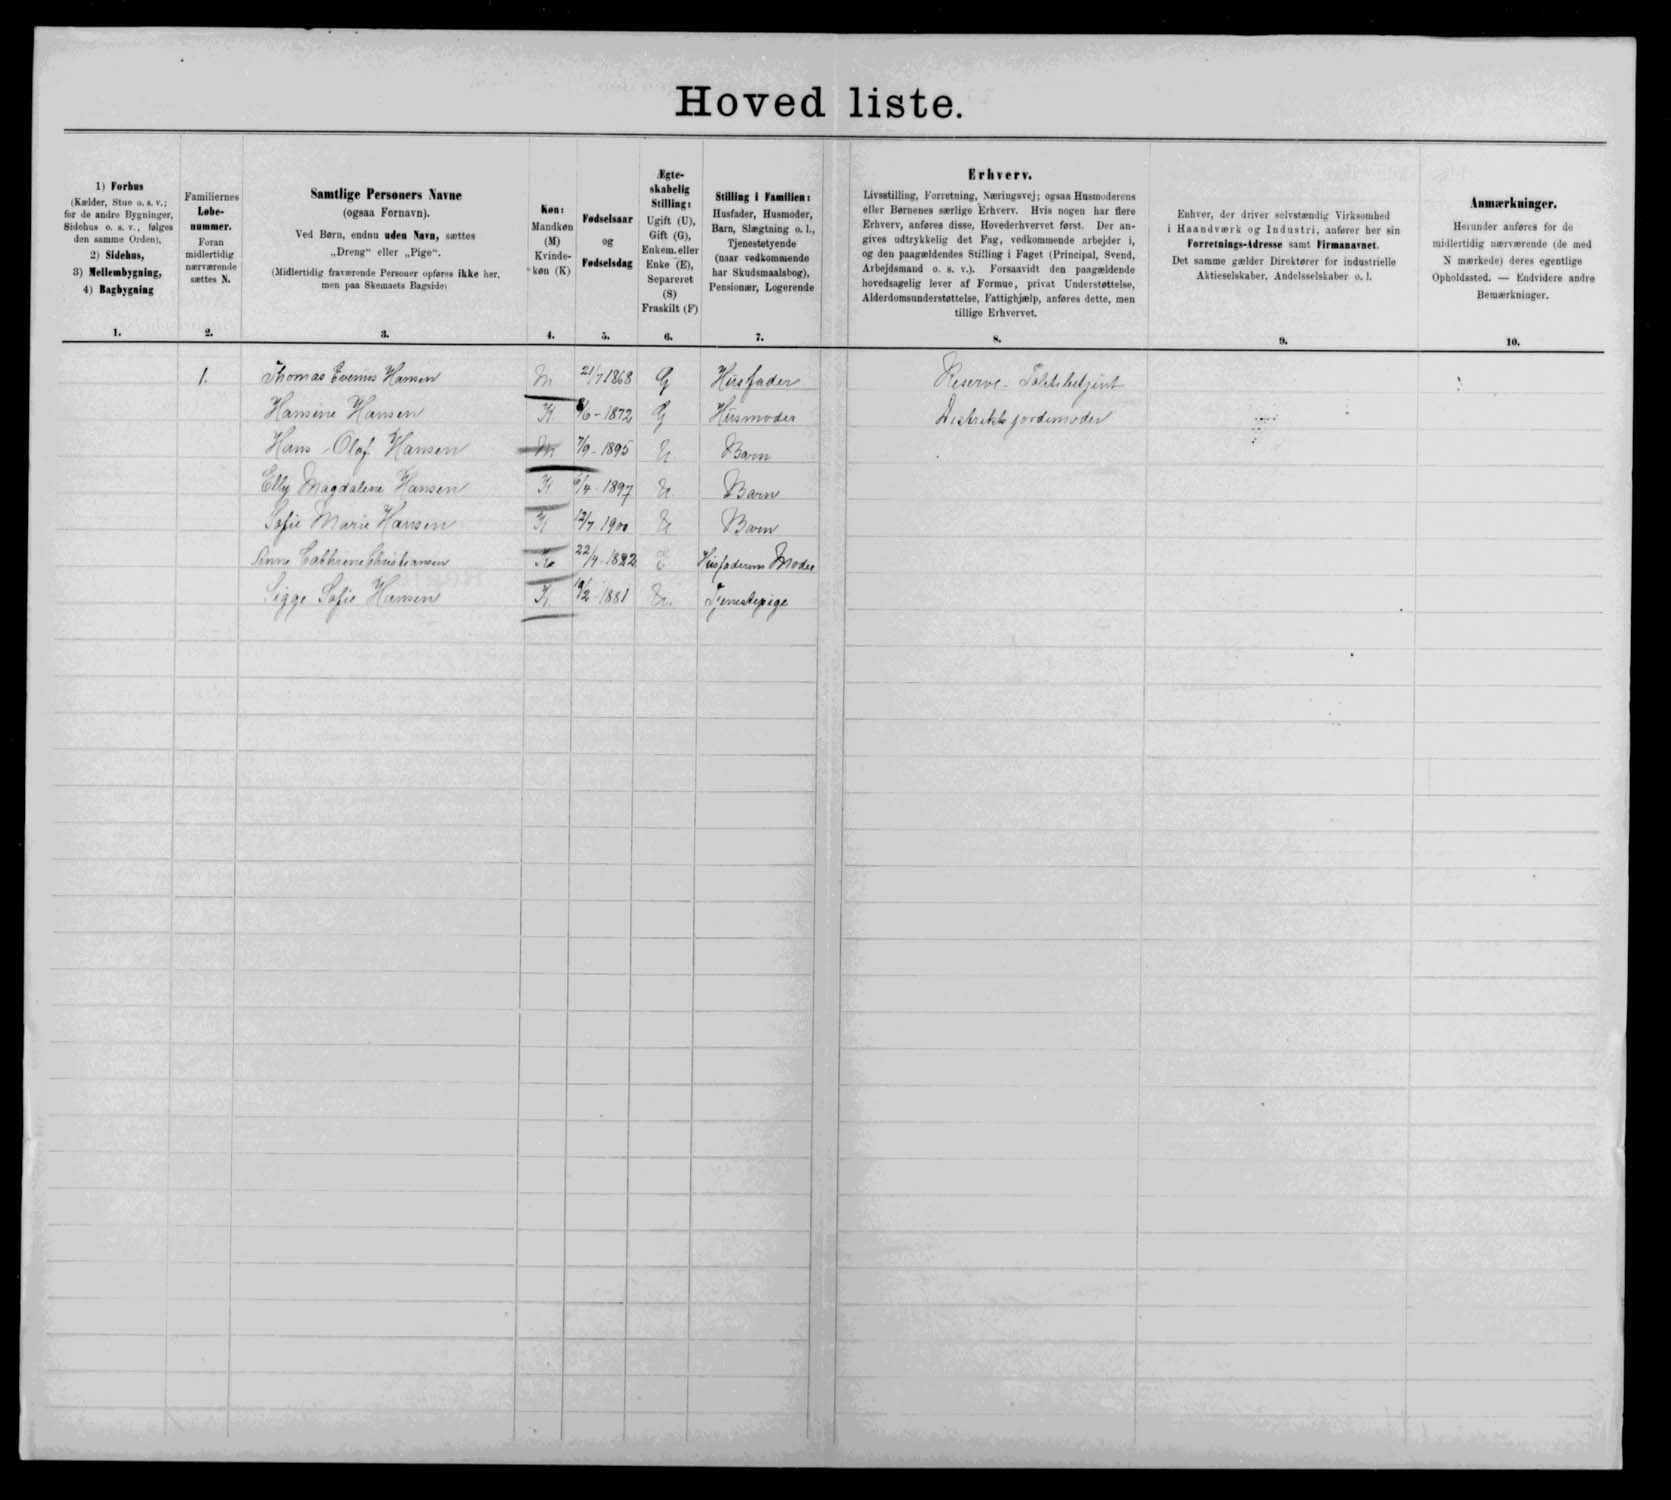 Hovedliste.
1) Forhus
(Kælder, Stue o. s. v.;
for de andre Bygninger,
Sidehus o. s. v., følges
den samme Orden),
2) Sidehus,
3) Mellembygning,
4) Bagbygning
1.
Familiernes
Løbe-
nummer.
Foran
midlertidig
nærværende
sættes N.
2.
Samtlige Personers Navne
(ogsaa Fornavn).
Ved Børn, endnu uden Navn, sættes
„Dreng“ eller „Pige“.
(Midlertidig fraværende Personer opføres ikke her,
men paa Skemaets Bagside)
3.
Køn:
Mandkøn
(M)
Kvinde-
køn (K)
4.
Fødselsaar
og
Fødselsdag
5.
Ægte-
skabelig
Stilling:
Ugift (U),
Gift (G),
Enkem. eller
Enke (E),
Separeret
(S)
Fraskilt (F)
6.
Stilling i Familien:
Husfader, Husmoder,
Barn, Slægtning o. l.,
Tjenestetyende
(naar vedkommende
har Skudsmaalsbog),
Pensionær, Logerende
7.
Erhverv.
Livsstilling, Forretning, Næringsvej; ogsaa Husmoderens
eller Børnenes særlige Erhverv. Hvis nogen har flere
Erhverv, anføres disse, Hovederhvervet først. Der an-
gives udtrykkelig det Fag, vedkommende arbejder i,
og den paagældendes Stilling i Faget (Principal, Svend,
Arbejdsmand o. s. v.). Forsaavidt den paagældende
hovedsagelig lever af Formue, privat Understøttelse,
Alderdomsunderstøttelse, Fattighjælp, anføres dette, men
tillige Erhvervet.
8.
Enhver, der driver selvstændig Virksomhed
i Haandværk og Industri, anfører her sin
Forretnings-Adresse samt Firmanavnet.
Det samme gælder Direktører for industrielle
Aktieselskaber, Andelsselskaber o. l.
9.
Anmærkninger.
Herunder anføres for de
midlertidig nærværende (de med
N mærkede) deres egentlige
Opholdssted. — Endvidere andre
Bemærkninger.
10.
1. Thomas Evenius Hansen M 21/7 1868 G Husfader Reserve-Toldbetjent
Hansine Hansen K /6-1872 G Husmoder Distriktsjordemoder
Hans Olaf Hansen M 7/9-1895 U. Barn
Elly Magdalene Hansen K /4-1897 U. Barn
Sofie Marie Hansen K 12/7 1900 U Barn
Anne Cathrine Christiansen K 22/4-1822 E Husfaderens Moder
Sigge Sofie Hansen K. /2-1881 U. Tjenestepige